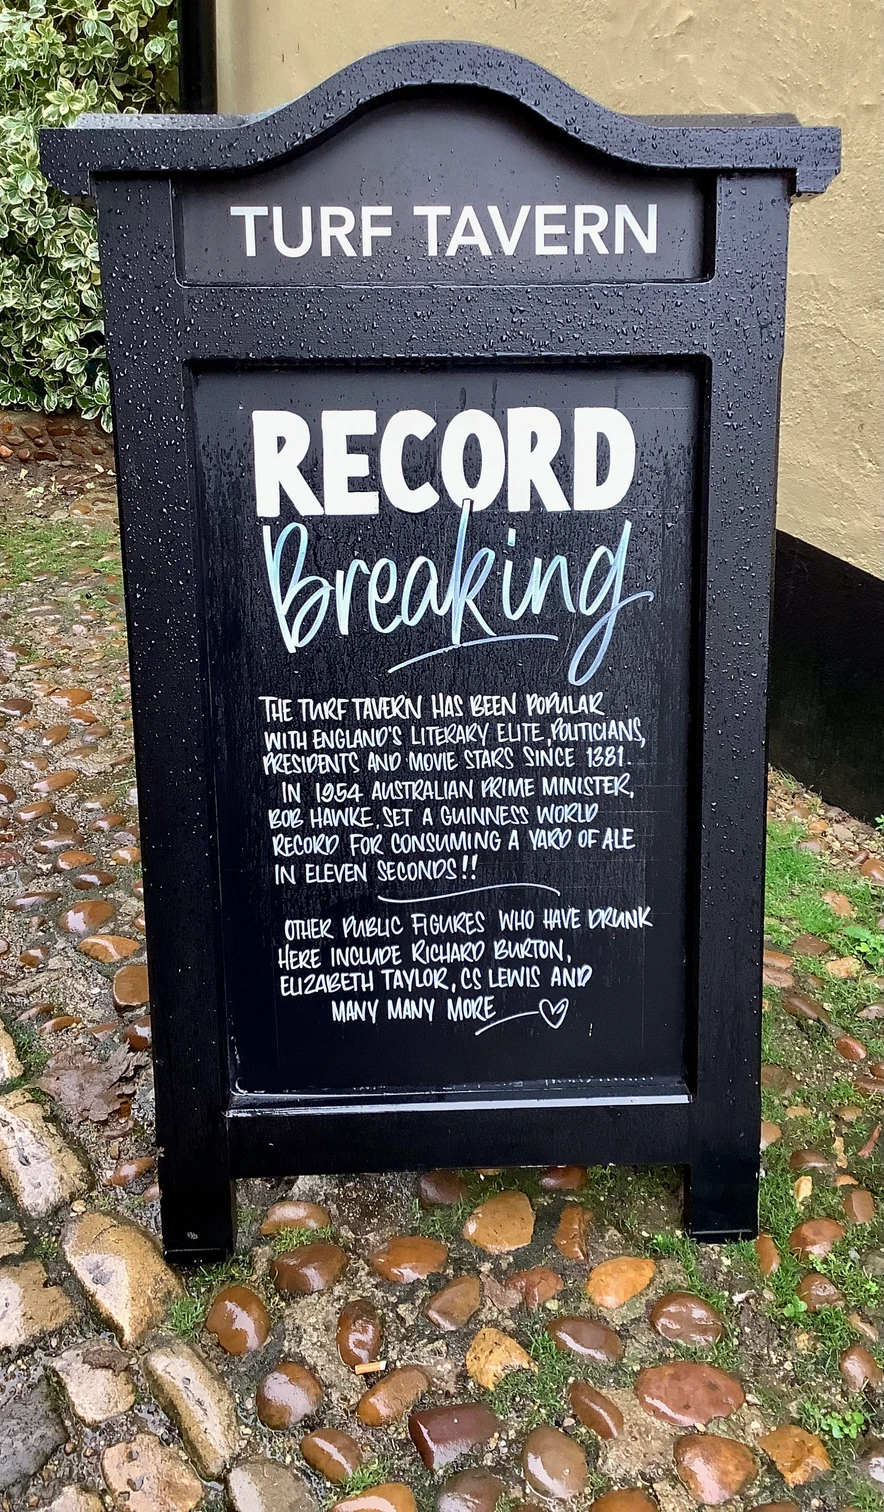 TURF TAVERN
RECORD
Breaking
THE TURF TAVERN HAS BEEN POPULAR
WITH ENGLAND'S LITERARY ELITE, POLITICIANS,
PRESIDENTS AND MOVIE STARS SINCE 1381.
IN 1954 AUSTRALIAN PRIME MINISTER,
BOB HAWKE, SET A GUINNESS WORLD
RECORD FOR CONSUMING A YARD OF ALE
IN ELEVEN SECONDS!!
OTHER PUBLIC FIGURES WHO HAVE DRUNK
HERE INCLUDE RICHARD BURTON,
ELIZABETH TAYLOR, CS LEWIS AND
MANY MANY MORE